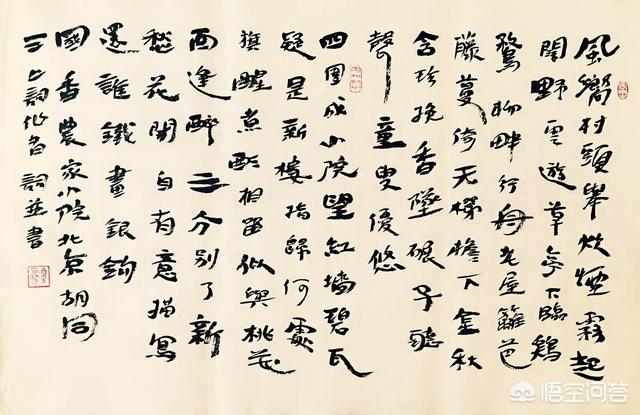 風響村頭舉炊煙霧起
閒野雲遊草亭下臨鶏
鶩柳畔行舟老屋籬芭
藤蔓倚天梯檐下金秋
含珍挽香墜碾子聽
聲童叟優悠
四圍成小院望紅墻碧瓦
疑是新樓指歸何處
旗醒煮酌相留似與桃花
西逢醉二分別了新
愁花開自有意描寫
還誰鐵畫銀鉤
國香農家小院北京胡同
三詞作者詞並書
悟空问答